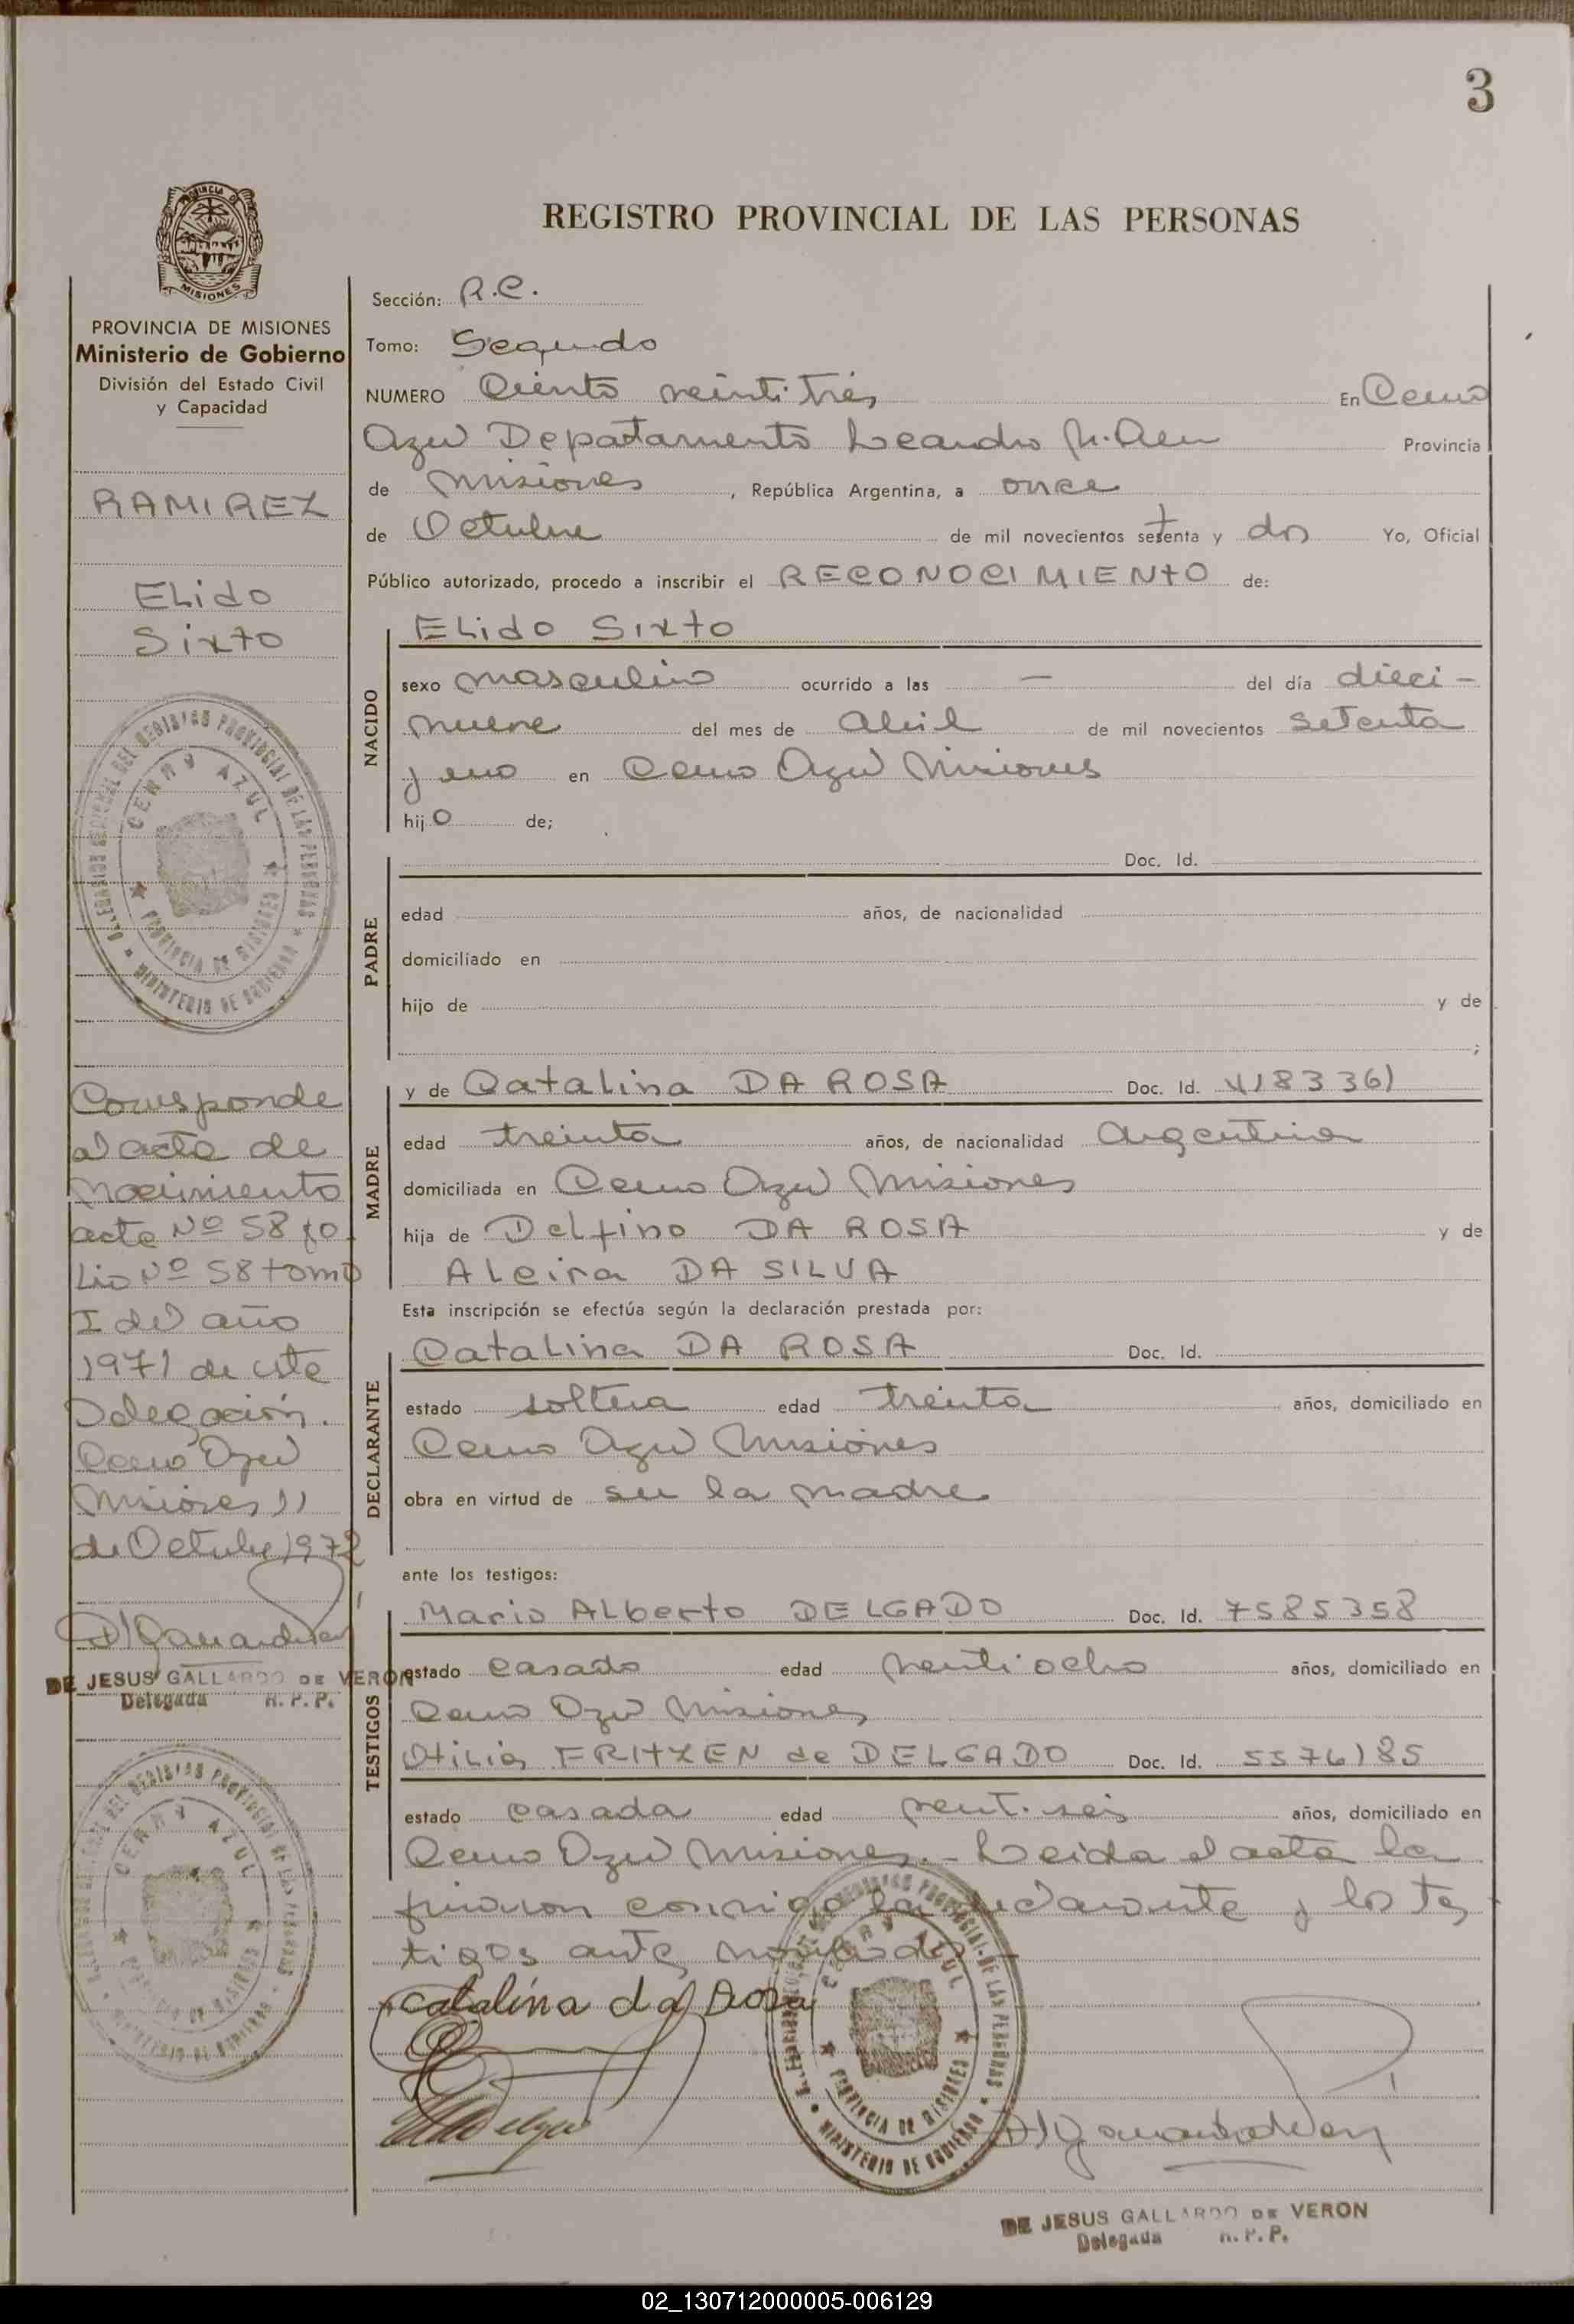 3
REGISTRO PROVINCIAL DE LAS PERSONAS
PROVINCIA DE MISIONES
Ministerio de Gobierno
División del Estado Civil
y Capacidad
RAMIREZ
ELido
Sixto
Corresponde
al acta de
Nacimiento
acta Nº 58 fo
Lio Nº 58 tomo
I del año
1971 de esta
Delegación.
Cerro Azul
Misiones 11
de Octubre 1972
DE JESUS GALLARDO DE VERON
Delegada R. P. P.
Sección: R.C.
Tomo: Segundo
NUMERO Ciento veintitrés En Cerro
Azul Departamento Leandro N. Alem Provincia
de Misiones, República Argentina, a once
de Octubre de mil novecientos setenta y dos Yo, Oficial
Público autorizado, procedo a inscribir el RECONOCIMIENTO de:
NACIDO
ELido Sixto
sexo masculino ocurrido a las — del día dieci-
nueve del mes de Abril de mil novecientos setenta
y uno en Cerro Azul Misiones
hijo de;
PADRE
Doc. Id.
edad años, de nacionalidad
domiciliado en
hijo de y de
;
MADRE
y de Catalina DA ROSA Doc. Id. 4183361
edad treinta años, de nacionalidad Argentina
domiciliada en Cerro Azul Misiones
hija de Delfino DA ROSA y de
ALcira DA SILVA
Esta inscripción se efectúa según la declaración prestada por:
DECLARANTE
Catalina DA ROSA Doc. Id.
estado soltera edad treinta años, domiciliado en
Cerro Azul Misiones
obra en virtud de ser la madre
ante los testigos:
TESTIGOS
Mario ALberto DELGADO Doc. Id. 7585358
estado casado edad veintiocho años, domiciliado en
Cerro Azul Misiones
Otilia FRITZEN de DELGADO Doc. Id. 5576185
estado casada edad veintiseis años, domiciliado en
Cerro Azul Misiones.- Leida el acta la
firmaron conmigo la declarante y los tes
tigos antes nombrados
catalina da Rosa
DE JESUS GALLARDO DE VERON
Delegada R. P. P.
CERRO AZUL
PROVINCIA DE MISIONES
MINISTERIO DE GOBIERNO
02_130712000005-006129